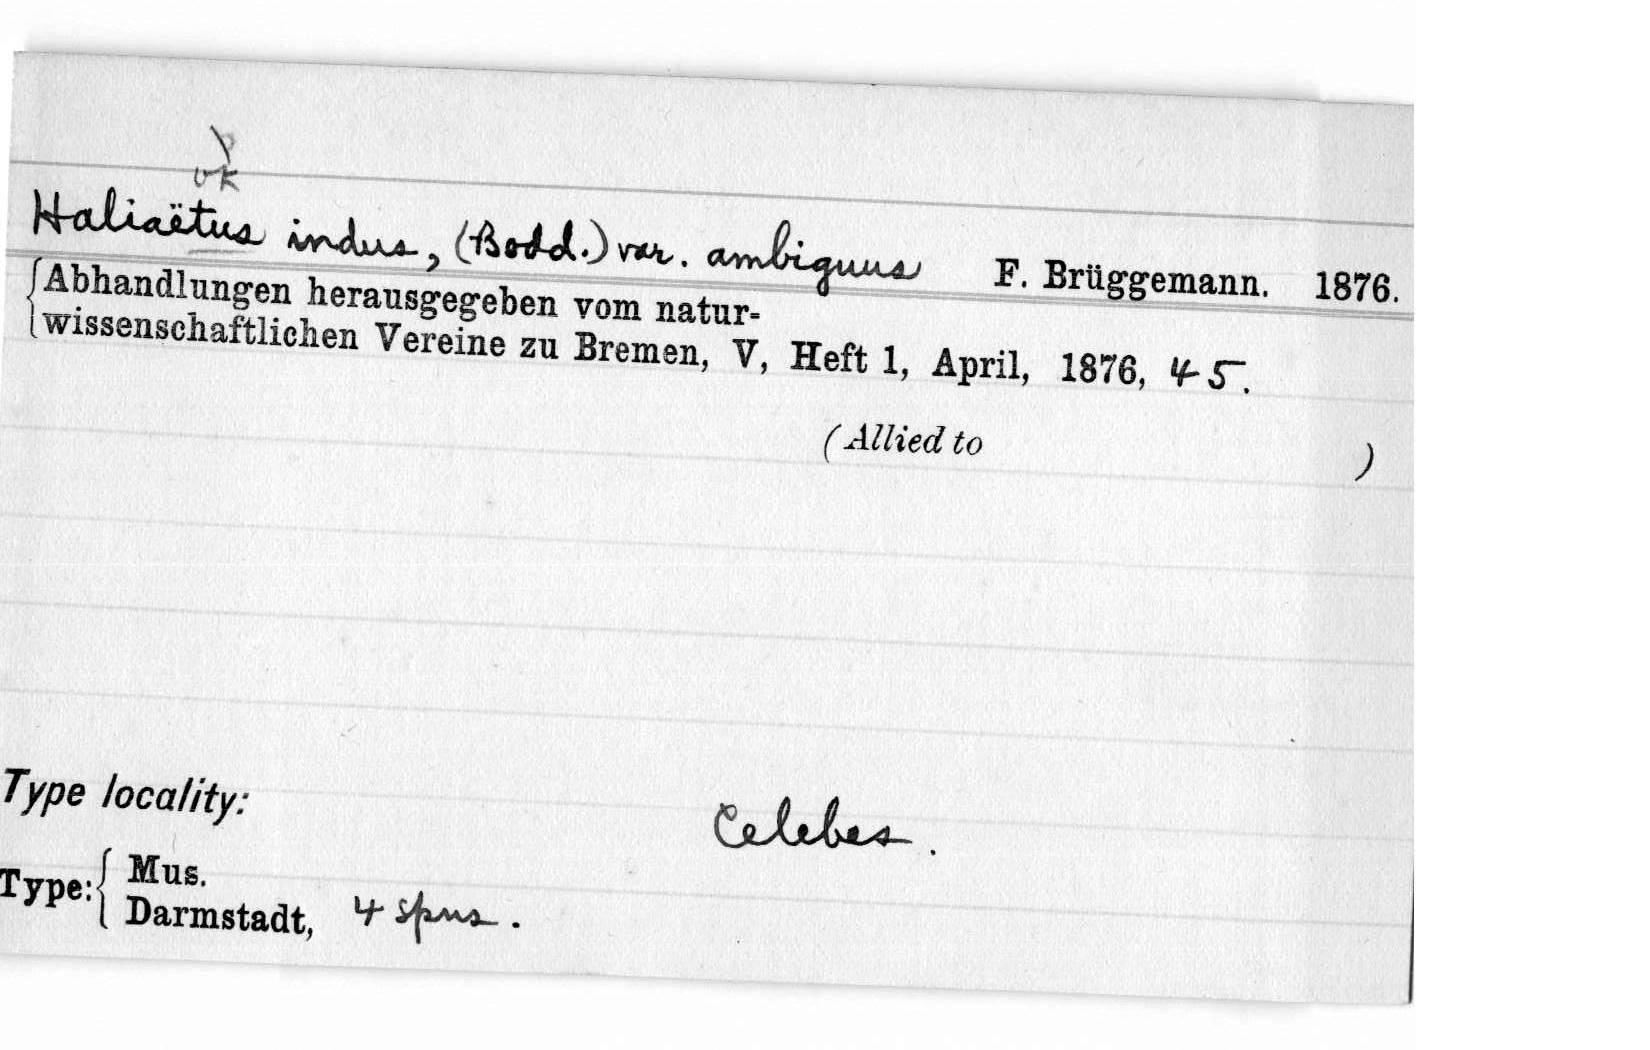 ok
Haliaëtus indus, (Bodd.) var. ambiguus F. Brüggemann. 1876.
Abhandlungen herausgegeben vom natur-
wissenschaftlichen Vereine zu Bremen, V, Heft 1, April, 1876, 45.
(Allied to )
Type locality: Celebes.
Type: Mus.
Darmstadt, 4 spns.